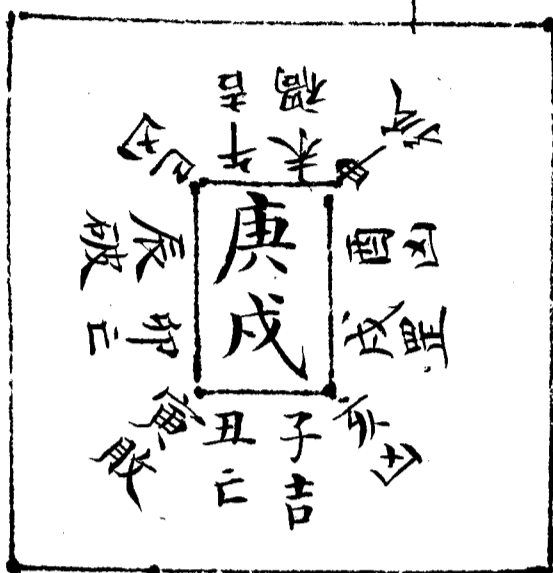 庚戌
子吉
丑亡
寅敗
卯亡
辰破
巳囚
午吉
未禍
申
酉
戌
亥